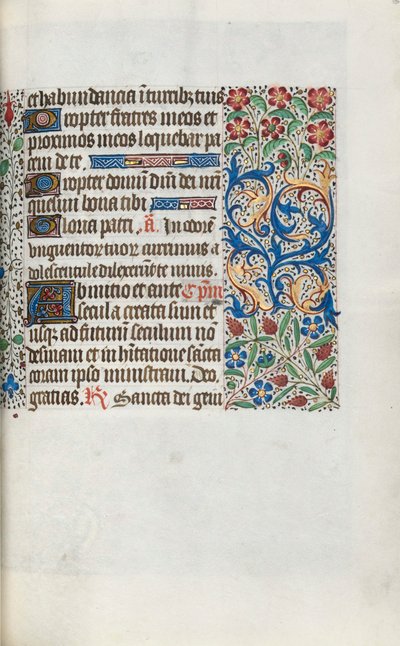 et habundancia ī turribz tuis
Propter fratres meos et
proximos meos loquebar pa
cem de te.
Propter domū dn̄i dei nr̄i
quesiui bona tibi
Gloria patri. ā. In odorē
vnguentor tuor currimus a
dolescentule dilexerūt te nimis.
Ab inicio et ante Cpm̄
secula creata sum et
usq̄ ad futurū seculum nō
desinam et in hītatione sancta
coram ipso ministraui. Deo
gratias. R Sancta dei geni